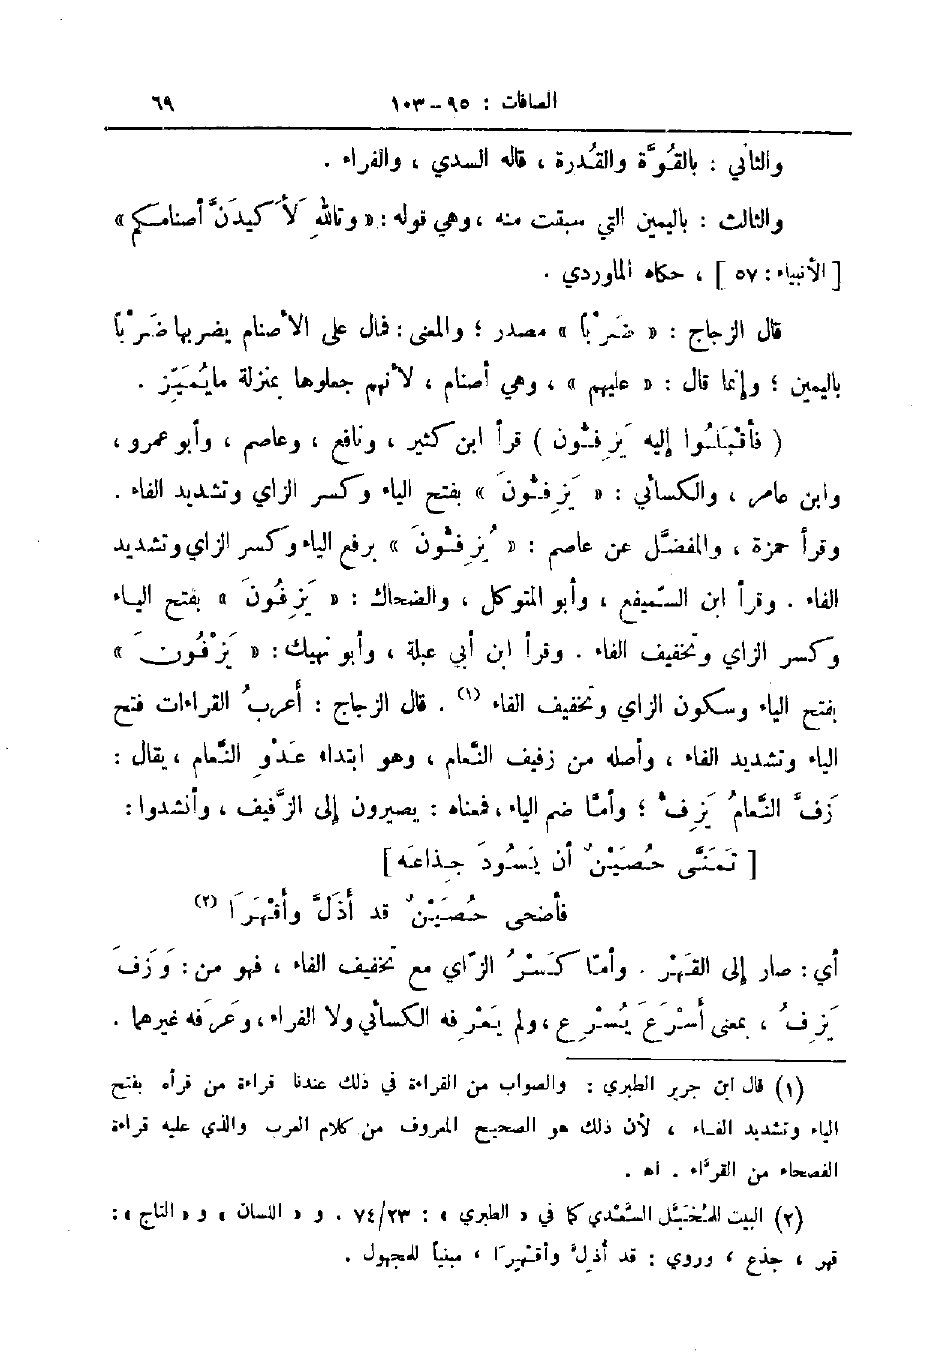 الصافات : ٩٥ – ١٠٣ ٦٩
والثاني : بالقُوَّة والقُدرة ، قاله السدي ، والفراء .
والثالث : باليمين التي سبقت منه ، وهي قوله : « وتاللهِ لَأَكيدَنَّ أصنامكم »
[ الأنبياء : ٥٧ ] ، حكاه الماوردي .
قال الزجاج : « ضَرْباً » مصدر ؛ والمعنى : فمال على الأصنام يضربها ضَرْباً
باليمين ؛ وإنما قال : « عليهم » ، وهي أصنام ، لأنهم جعلوها بمنزلة مايُمَيِّز .
( فأقْبَلُوا إليه يَزِفُّون ) قرأ ابن كثير ، ونافع ، وعاصم ، وأبو عمرو ،
وابن عامر ، والكسائي : « يَزِفُّونَ » بفتح الياء وكسر الزاي وتشديد الفاء .
وقرأ حمزة ، والمفضَّل عن عاصم : « يُزِفُّونَ » برفع الياء وكسر الزاي وتشديد
الفاء . وقرأ ابن السَّميفع ، وأبو المتوكل ، والضحاك : « يَزِفُونَ » بفتح اليـاء
وكسر الزاي وتخفيف الفاء . وقرأ ابن أبي عبلة ، وأبو نهيك : « يَزْفُونَ »
بفتح الياء وسكون الزاي وتخفيف الفاء (١) . قال الزجاج : أعربُ القراءات فتح
الياء وتشديد الفاء ، وأصله من زفيف النَّعام ، وهو ابتداء عَدْوِ النَّعام ، يقال :
زَفَّ النَّعامُ يَزِفُّ ؛ وأمّا ضم الياء ، فمعناه : يصيرون إلى الزَّفيف ، وأنشدوا :
[ تَمَنَّى حُصَيْنٌ أن يَسُودَ جِذاعَه ]
فأضحى حُصَيْنٌ قد أذَلَّ وأقْهَرَا (٢)
أي : صار إلى القَهْر . وأمّا كَسْرُ الزّاي مع تخفيف الفاء ، فهو من : وَزَفَ
يَزِفُ ، بمعنى أسْرَعَ يُسْرِع ، ولم يَعْرِفه الكسائي ولا الفراء ، وعَرَفه غيرهما .
(١) قال ابن جرير الطبري : والصواب من القراءة في ذلك عندنا قراءة من قرأه بفتح
الياء وتشديد الفـاء ، لأن ذلك هو الصحيح المعروف من كلام العرب والذي عليه قراءة
الفصحاء من القرَّاء . اه .
(٢) البيت للمُخَبَّل السَّعْدي كما في « الطبري » : ٧٤/٢٣ . و « اللسان » و « التاج » :
قهر ، جذع ، وروي : قد أُذِلَّ وأُقْهِرَا ، مبنياً للمجهول .